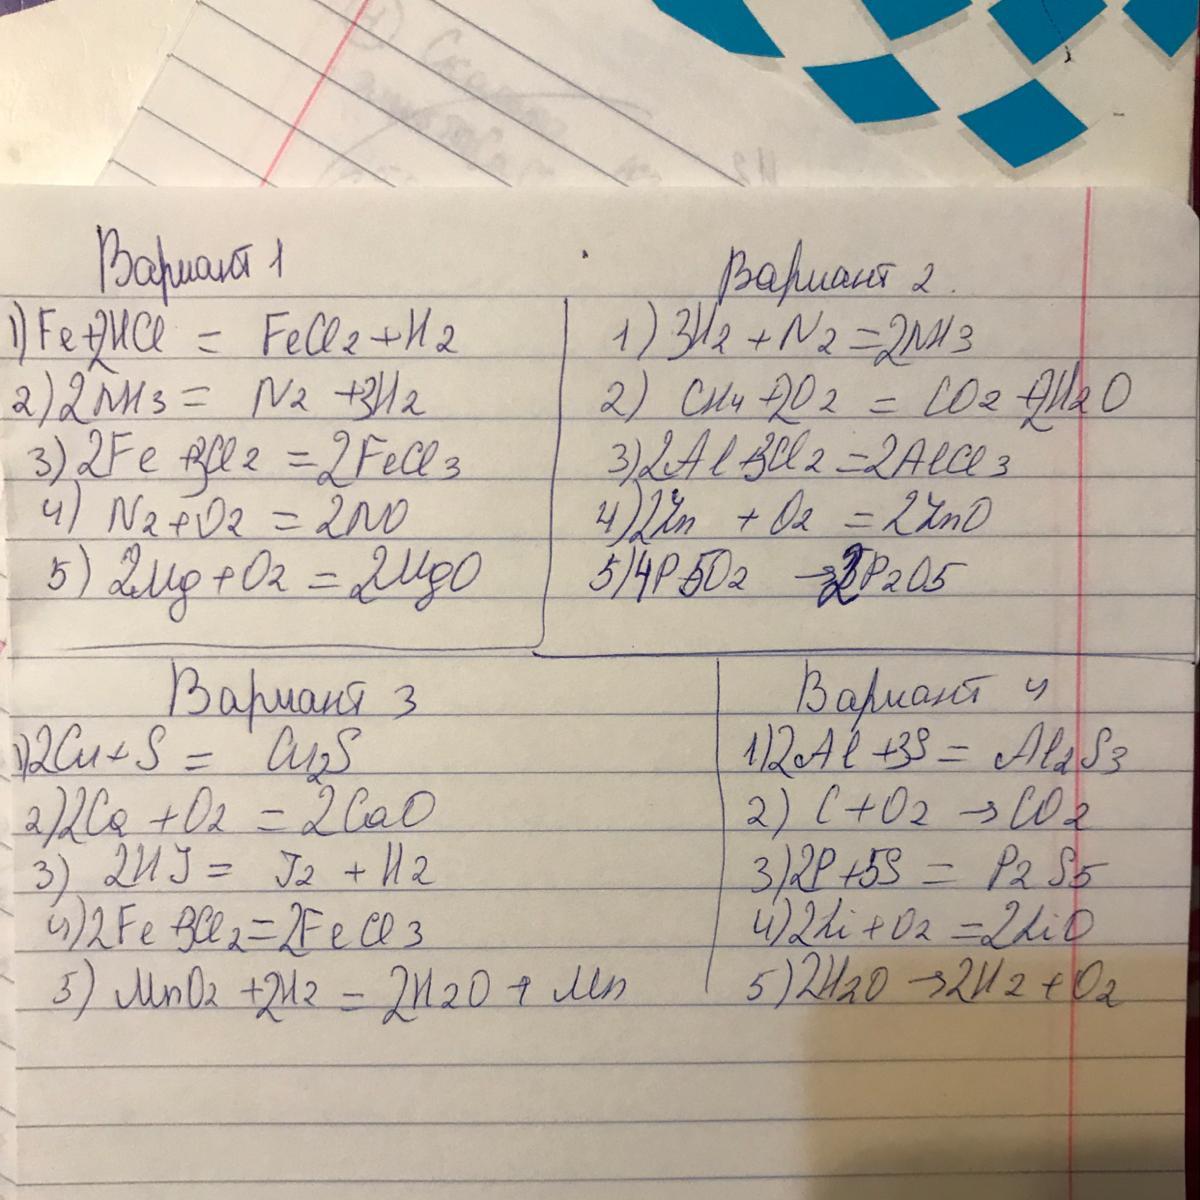 Вариант 1
1) Fe+2HCl = FeCl2+H2
2) 2NH3 = N2 +3H2
3) 2Fe +3Cl2 =2FeCl3
4) N2+O2 =2NO
5) 2Mg+O2 =2MgO
Вариант 2.
1) 3H2 +N2 =2NH3
2) CH4 +2O2 = CO2 +2H2O
3) 2Al+3Cl2 =2AlCl3
4) 2Zn +O2 =2ZnO
5) 4P 5O2 →2P2O5
Вариант 3
1) 2Cu+S = Cu2S
2) 2Ca +O2 =2CaO
3) 2HJ = J2 +H2
4) 2Fe +3Cl2=2FeCl3
5) MnO2 +2H2 =2H2O + Mn
Вариант 4
1) 2Al +3S = Al2S3
2) C+O2 →CO2
3) 2P+5S = P2S5
4) 2Li+O2 =2LiO
5) 2H2O →2H2+O2